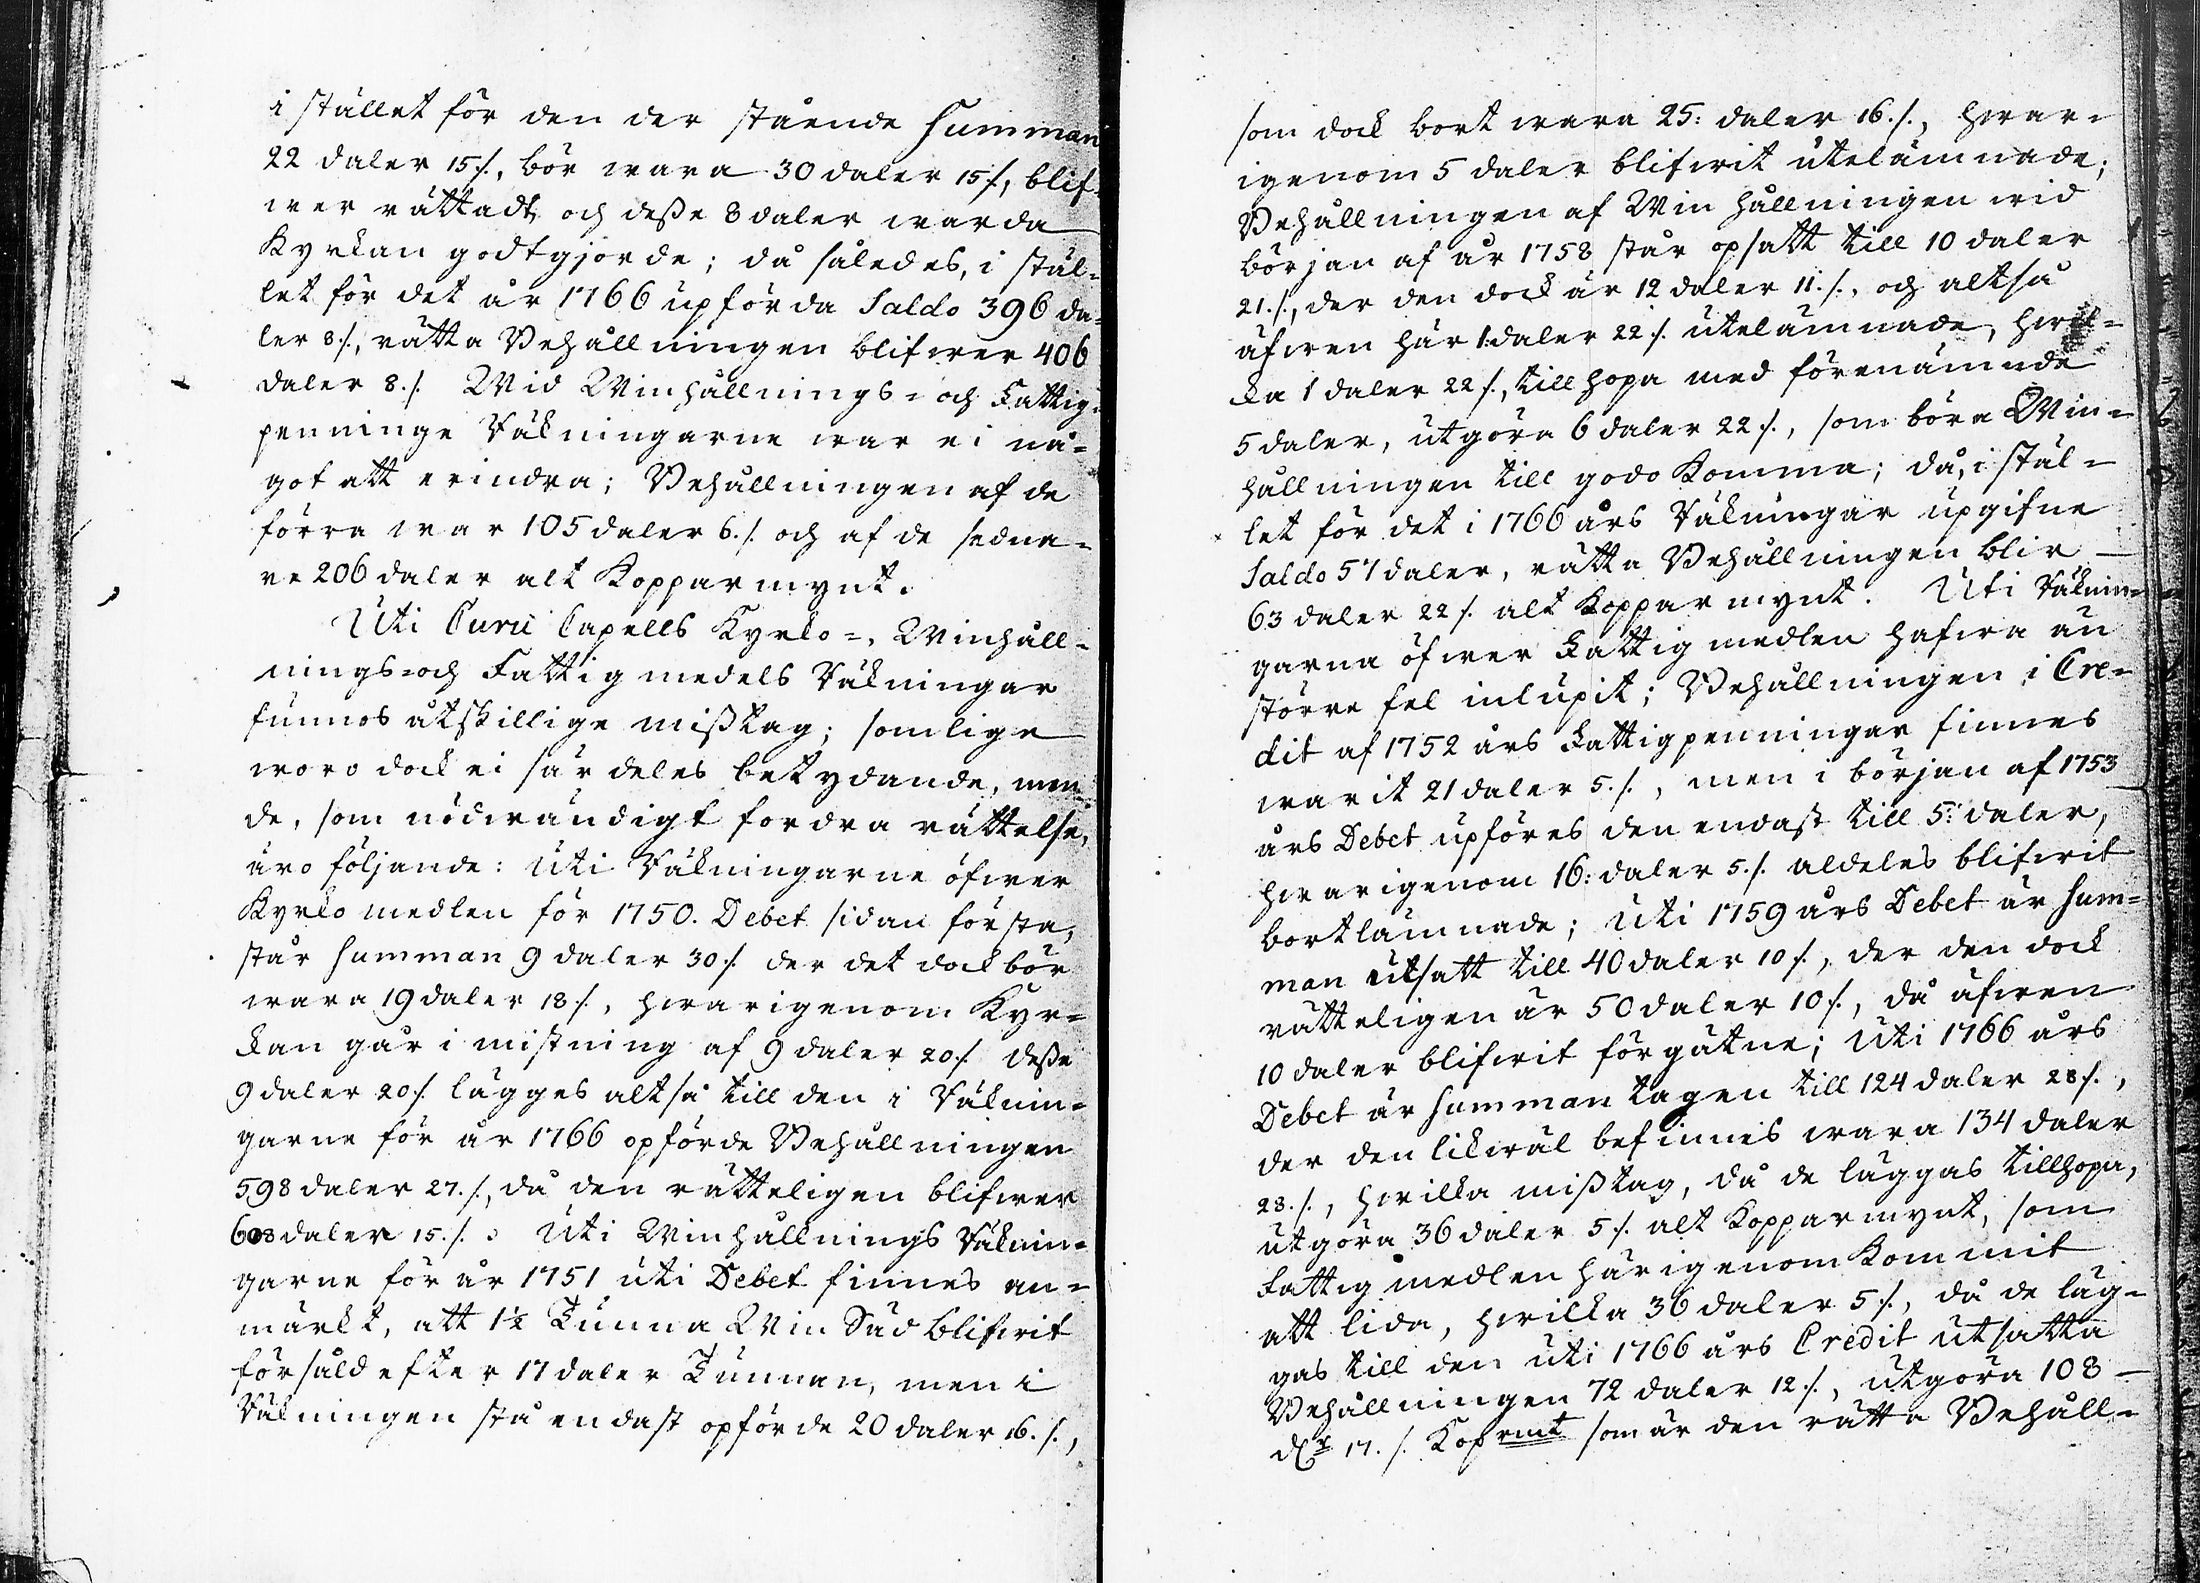 i stället för den der stående summan
22 daler 15 /., bör wara 30 daler 15 /., blif-
wer rättadt, och desse 8 daler warda
Kyrkan godtgjorde; då således, i stäl-
let för det år 1766 upförda Saldo 396 da-
ler 8 /., rätta Behållningen blifwer 406
daler 8./. Wid Winhållnings- och Fattig-
penninge Räkningarne war ei nå-
got att erindra; Behållningen af de
förra war 105 daler 6./. och af de sedna-
re 206 daler alt Kopparmynt.
Uti Curu Capells Kyrko-, Winhåll-
nings- och Fattigmedels Räkningar
funnos åtskillige misstag; somlige
woro dock ei särdeles betydande, men
de, som nödwändigt fordra rättelse,
äro följande: Uti Räkningarne öfwer
Kyrko medlen för 1750. Debet sidan första,
står summan 9 daler 30 /. der det dock bör
wara 19 daler 18 /., hwarigenom Kyr-
kan går i mistning af 9 daler 20 /. desse
9 daler 20 /. lägges altså till den i Räknin-
garne för år 1766 opförde Behållningen
598 daler 27. /., då den rätteligen blifwer
608 daler 15. /. Uti Winhållnings Räknin-
garne för år 1751 uti Debet finnes an-
märkt, att 1½ Tunna Win Säd blifwit
försåld efter 17 daler Tunnan, men i
Räkningen stå endast opförde 20 daler 16. /.,
som dock bort wara 25: daler 16. /., hwar-
igenom 5 daler blifwit utelämnade;
Behållningen af Winhållningen wid
början af år 1758 står opsatt till 10 daler
21. /., der den dock är 12 daler 11. /., och altså
äfwen här 1 daler 22 /. utelämnade, hwil-
ka 1 daler 22 /., tillhopa med förenämnde
5 daler, utgöra 6 daler 22 /., som böra Win-
hållningen till godo komma; då, i stäl-
let för det i 1766 års Räkningar upgifne
Saldo 57 daler, rätta Behållningen blir
63 daler 22 /. alt Kopparmynt. Uti Räknin-
garna öfwer Fattigmedlen hafwa än
större fel inlupit; Behållningen i Cre-
dit af 1752 års Fattigpenningar finnes
warit 21 daler 5. /., men i början af 1753
års Debet upföres den endast till 5: daler,
hwarigenom 16: daler 5. /. aldeles blifwit
bortlämnade; Uti 1759 års Debet är sum-
man utsatt till 40 daler 10 /., der den dock
rätteligen är 50 daler 10 /., då äfwen
10 daler blifwit förgätne; Uti 1766 års
Debet är summan tagen till 124 daler 28 /.,
der den likwäl befinnes wara 134 daler
28. /., hwilka misstag, då de läggas tillhopa,
utgöra 36 daler 5 /. alt Kopparmynt, som
Fattigmedlen härigenom kommit
att lida, hwilka 36 daler 5 /., då de läg-
gas till den uti 1766 års Credit utsatta
Behållningen 72 daler 12 /., utgöra 108
dr 17. /. Kopmt som är den rätta Behåll-